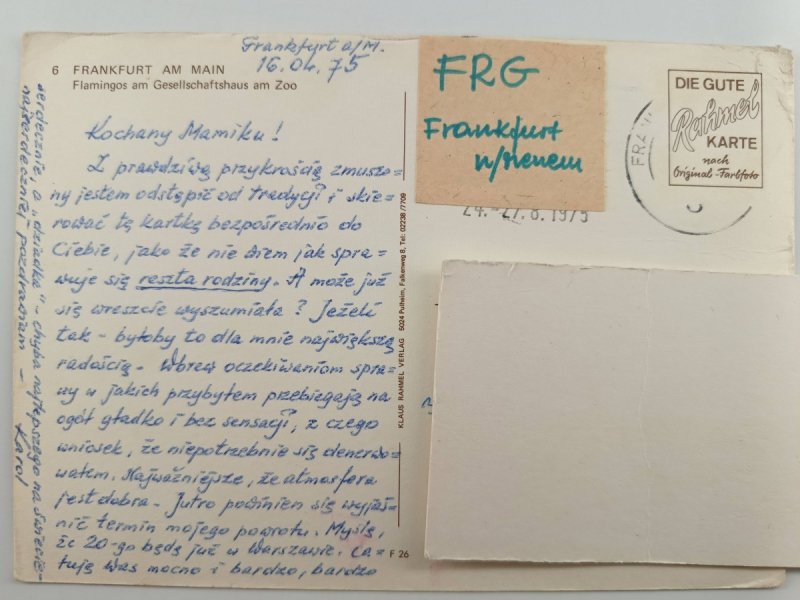 Frankfurt a/M.
16.04.75
6 FRANKFURT AM MAIN
Flamingos am Gesellschaftshaus am Zoo
Kochany Mamiku!
Z prawdziwą przykrością zmuszo=
ny jestem odstąpić od tradycji i skie=
rować tę kartkę bezpośrednio do
Ciebie, jako że nie wiem jak spra=
wuje się reszta rodziny. A może już
się wreszcie wyszumiała? Jeżeli
tak - byłoby to dla mnie największą
radością. Wbrew oczekiwaniom spra=
wy w jakich przybyłem przebiegają na
ogół gładko i bez sensacji, z czego
wniosek, że niepotrzebnie się denerwo=
wałem. Najważniejsze, że atmosfera
jest dobra. Jutro powinien się wyjaś=
nić termin mojego powrotu. Myślę,
że 20-go będę już w Warszawie. Ca=
łuję was mocno i bardzo, bardzo
serdecznie, a „dziadka" - chyba najlepszego na świecie -
najserdeczniej pozdrawiam -
Karol
KLAUS RAHMEL VERLAG 5024 Pulheim, Falkenweg 8, Tel: 02238/7709
F 26
FRG
Frankfurt
n/menem
FRAN
24.-27.8.1975
DIE GUTE
Rahmel
KARTE
nach
Original-Farbfoto